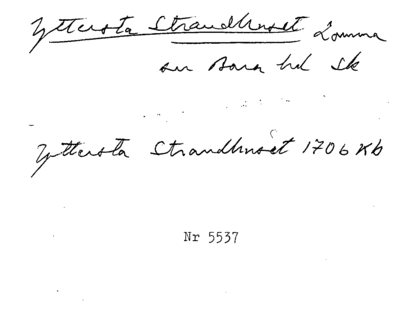 Yttersta Strandhuset Lomma
sn Bara hd Sk
Yttersta Strandhuset 1706 Kb
Nr 5537